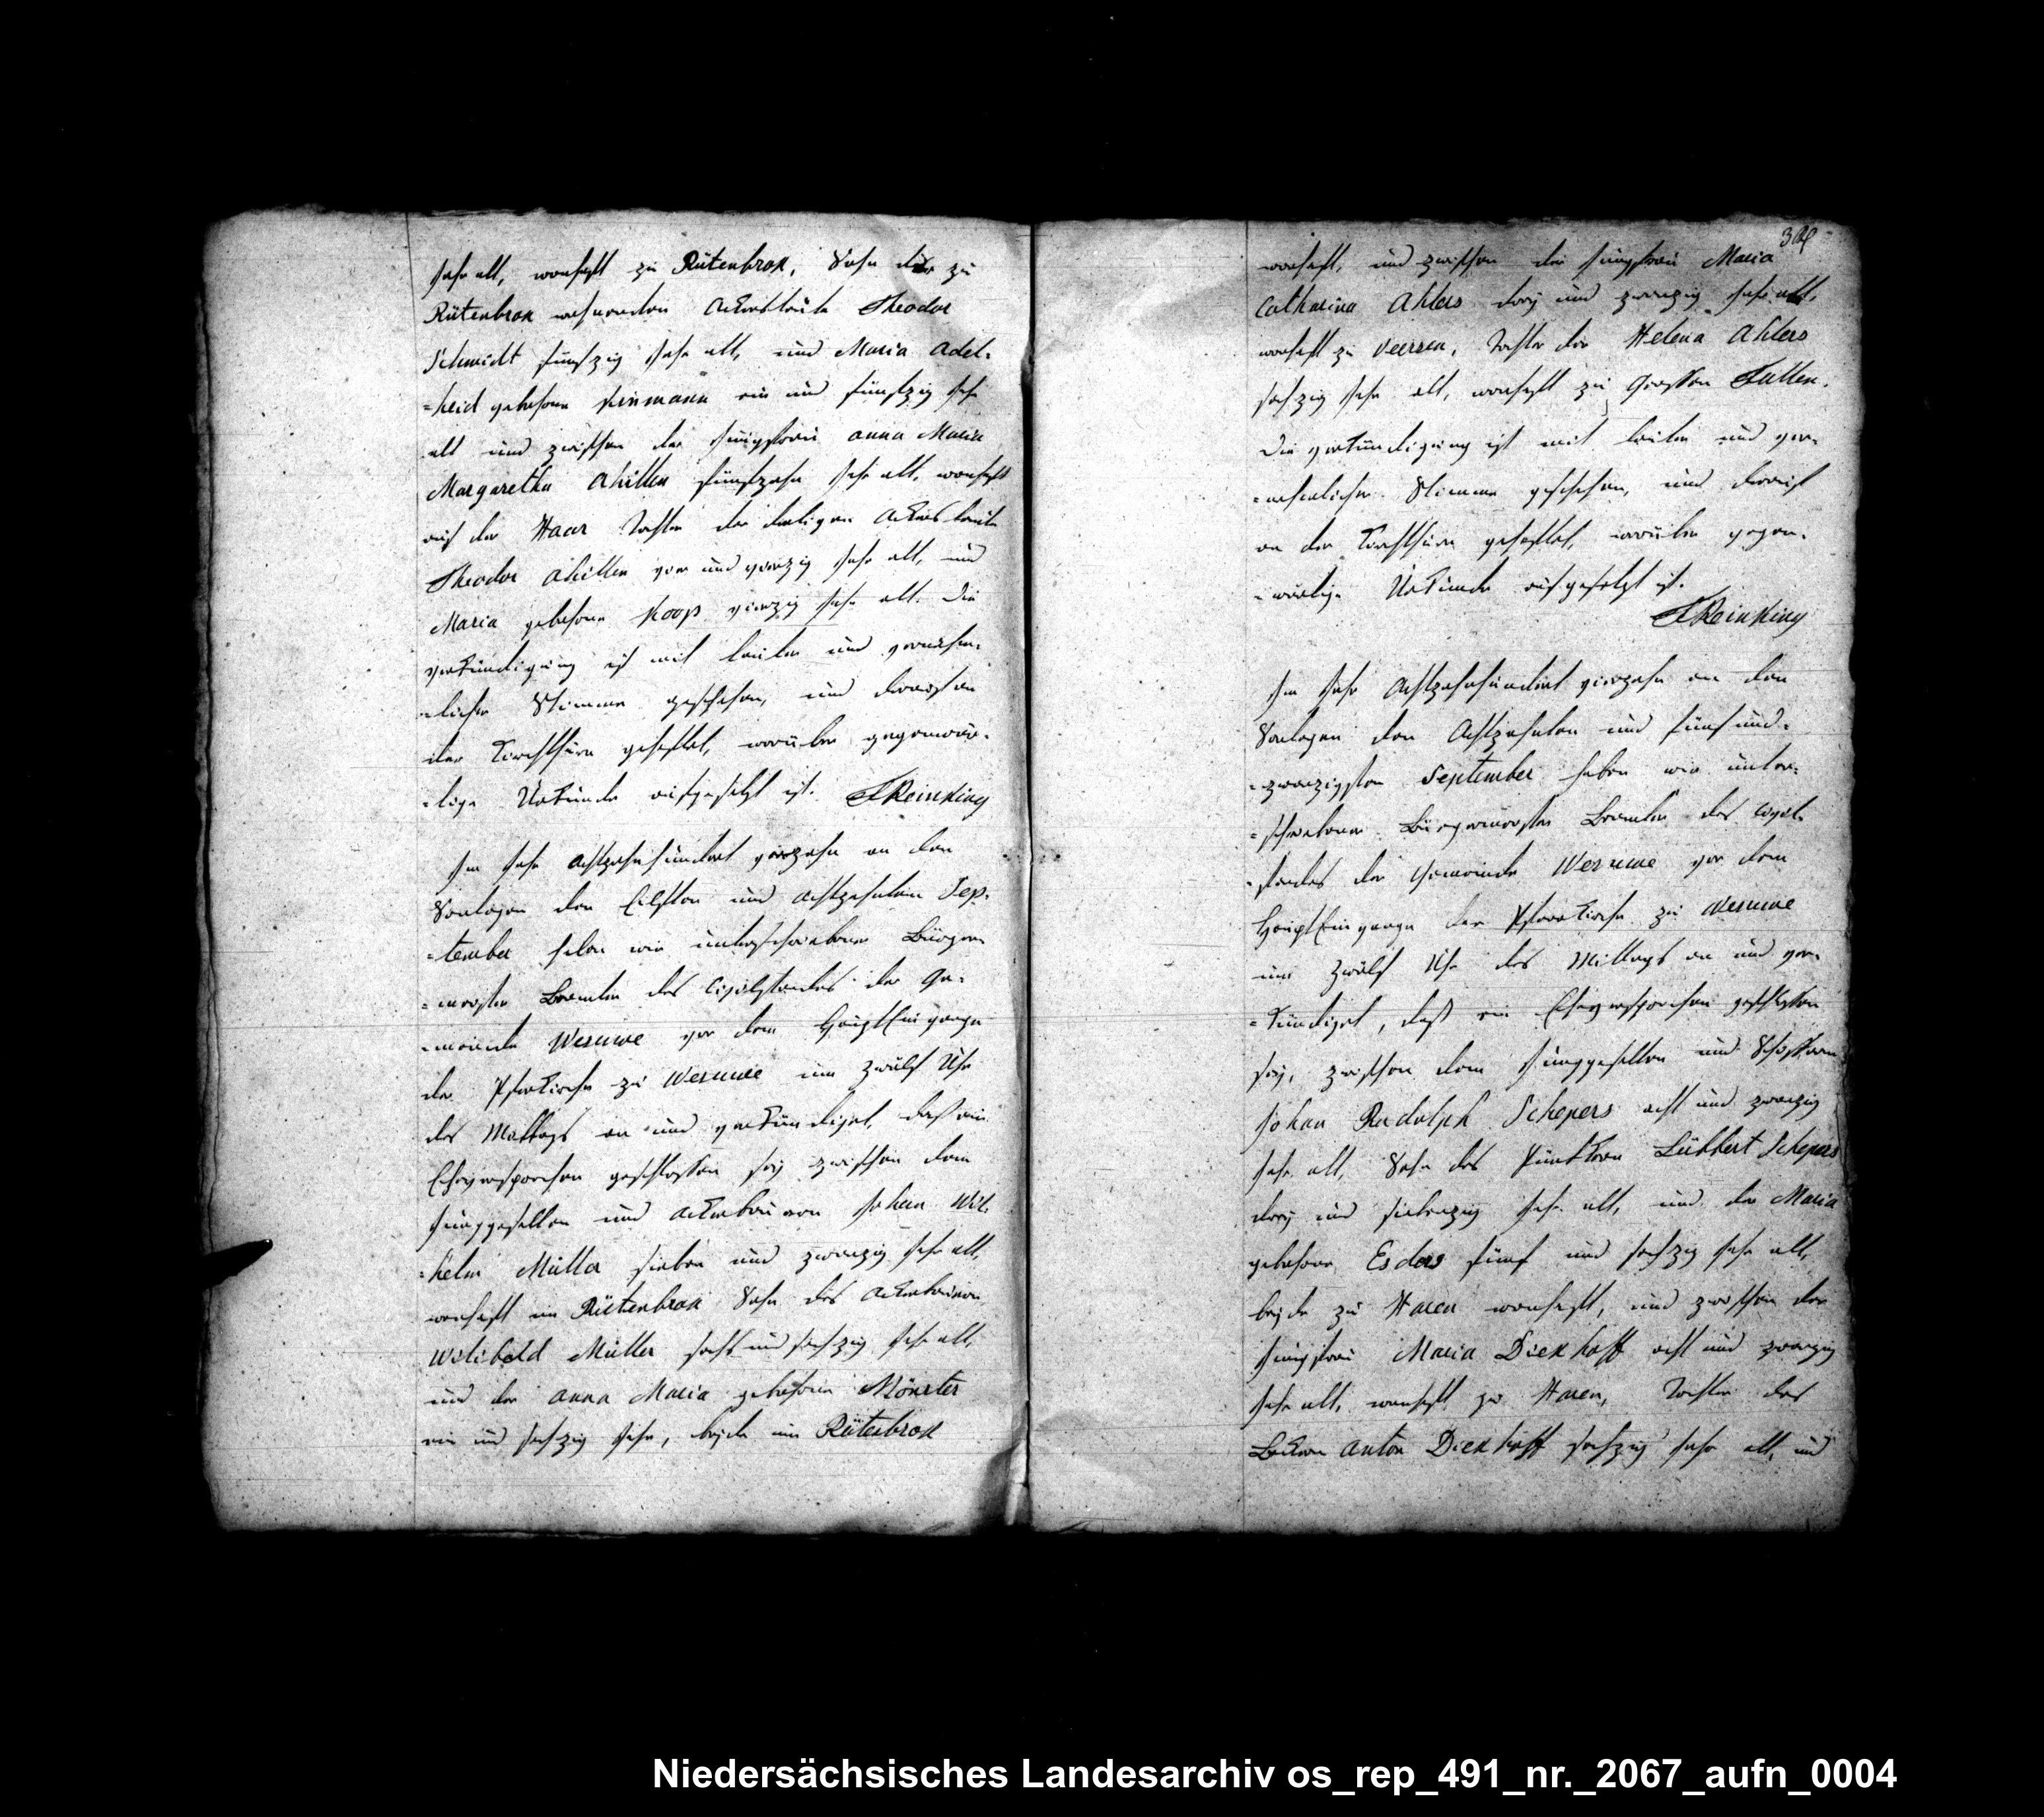 Jahr alt, wonhaft zu Rütenbrok, Sohn der zu
Rütenbrok wohnenden Ackersleute Theodor
Schmidt fünfzig Jahr alt, und Maria Adel-
=heid gebohrne Kinmann ein und fünfzig Jahr
alt und zwischen der Jungfrau Anna Maria
Margaretha Ahillen fünfzehn Jahr alt, wonhaft
auf der Haar Tochter der dortigen Ackersleute
Theodor Ahillen vier und vierzig Jahr alt, und
Maria gebohrne Koop vierzig Jahr alt. Die
Verkündigung ist mit lauter und vernehm-
=licher Stimme geschehen, und darauf an
der Kirchthüre geheftet, worüber gegenwär-
=tige Urkunde aufgesetzt ist. Reinking
Im Jahr Achtzehnhundert vierzehn an den
Sontagen den Eilften und achtzehnten Sep-
=tember haben wir unterschriebener Bürger-
=meister Beamter des Civilstandes der Ge-
=meinde Wesuwe vor dem HauptEingange
der Pfarkirche zu Wesuwe um zwölf Uhr
des Mittags an und verkündiget, daß ein
Eheversprechen geschlossen sey zwischen dem
Junggesellen und Ackerbauern Johan Wil-
=helm Müller sieben und zwanzig Jahr alt,
wonhaft im Rütenbrok Sohn des Ackerbauern
Wilibald Müller sechs und sechzig Jahr alt,
und der Anna Maria gebohrne Mönster
ein und sechzig Jahr, beyde im Rütenbrok
wonhaft, und zwischen der Jungfrau Maria
Catharina Ahlers drey und zwanzig Jahr alt,
wonhaft zu Veersen, Tochter der Helena Ahlers
sechzig Jahr alt, wonhaft zu Grossen Fullen.
Die Verkündigung ist mit lauter und ver-
=nehmlicher Stimme geschehen, und darauf
an der Kirchthüre geheftet, worüber gegen-
=wärtige Urkunde aufgesetzt ist.
Reinking
Im Jahr Achtzehnhundert vierzehn an den
Sontagen den Achtzehnten und fünfund-
=zwanzigsten September haben wir unter-
=schriebener Bürgermeister Beamter des Civil-
=standes der Gemeinde Wesuwe vor dem
HauptEingange der Pfarrkirche zu Wesuwe
um zwölf Uhr des Mittags an und ver-
=kündiget, daß ein Eheversprechen geschlossen
sey, zwischen dem Junggesellen und Schiffern
Johan Rudolph Schepers acht und zwanzig
Jahr alt, Sohn des Lübbert Schepers
drey und siebenzig Jahr alt, und der Maria
gebohrne Esders fünf und sechzig Jahr alt,
beyde zu Haren wonhaft, und zwischen der
Jungfrau Maria Diekhoff acht und zwanzig
Jahr alt, wonhaft zu Haren, Tochter des
Anton Diekhoff sechzig Jahr alt, und
Niedersächsisches Landesarchiv os_rep_491_nr._2067_aufn_0004